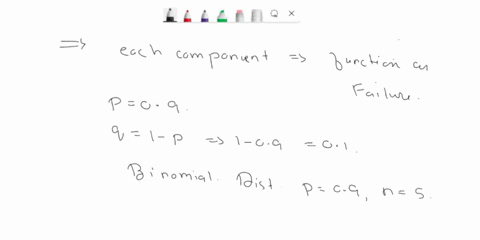 => each component => function or
Failure.
p = 0.9
q = 1 - p => 1 - 0.9 = 0.1.
Binomial Dist. p = 0.9, n = 5.